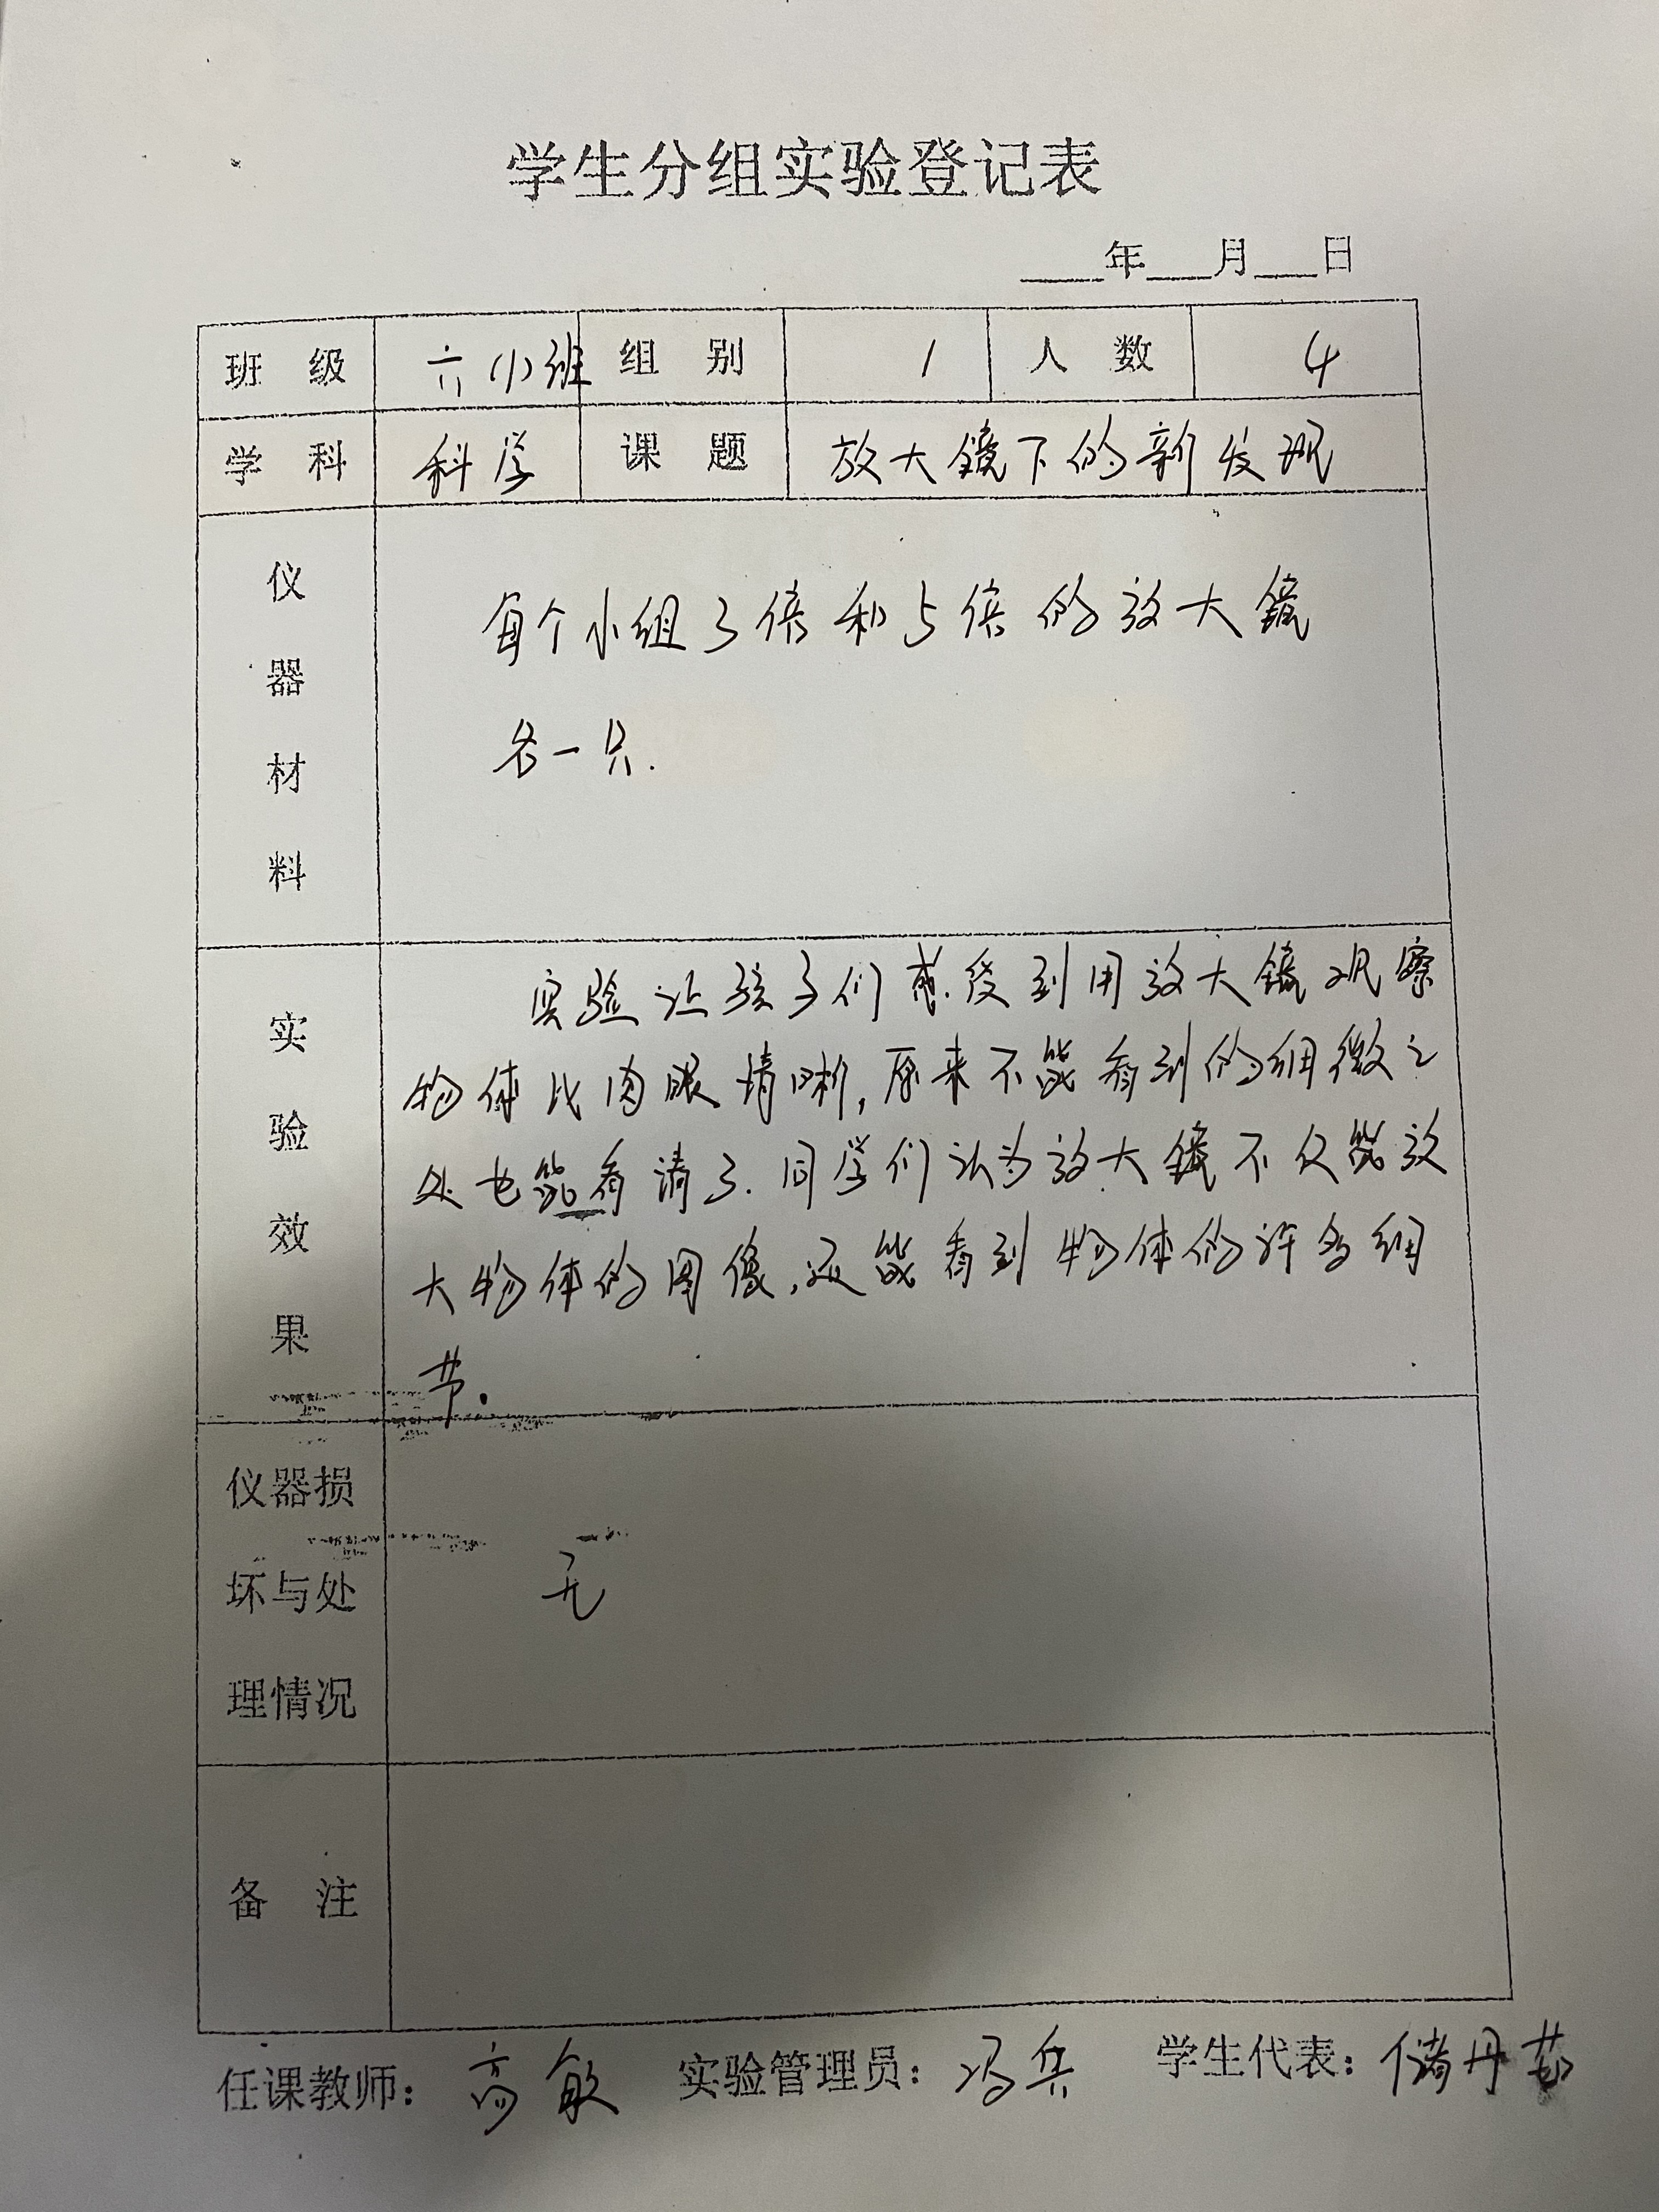 学生分组实验登记表
____年___月___日
班 级 六(1)班 组 别 1 人 数 4
学 科 科学 课 题 放大镜下的新发现
仪器材料
每个小组3倍和5倍的放大镜
各一只.
实验效果
实验让孩子们感受到用放大镜观察
物体比肉眼清晰,原来不能看到的细微之
处也能看清了.同学们认为放大镜不仅能放
大物体的图像,还能看到物体的许多细
节.
仪器损
坏与处
理情况
无
备 注
任课教师: 高敏 实验管理员: 冯兵 学生代表: 储丹